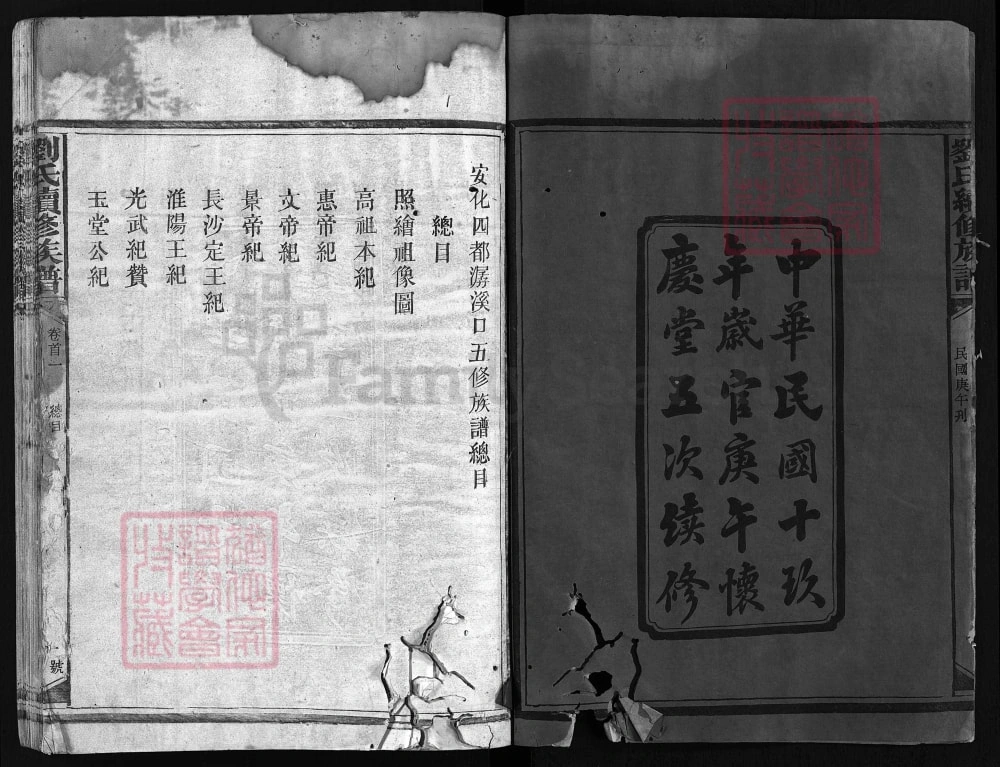 劉氏續修族譜
民國庚午刊
中華民國十玖
年歲官庚午懷
慶堂五次續修
安化四都潺溪口五修族譜總目
總目
照繪祖像圖
高祖本紀
惠帝紀
文帝紀
景帝紀
長沙定王紀
淮陽王紀
光武紀贊
玉堂公紀
劉氏續修族譜
卷首一
總目
號